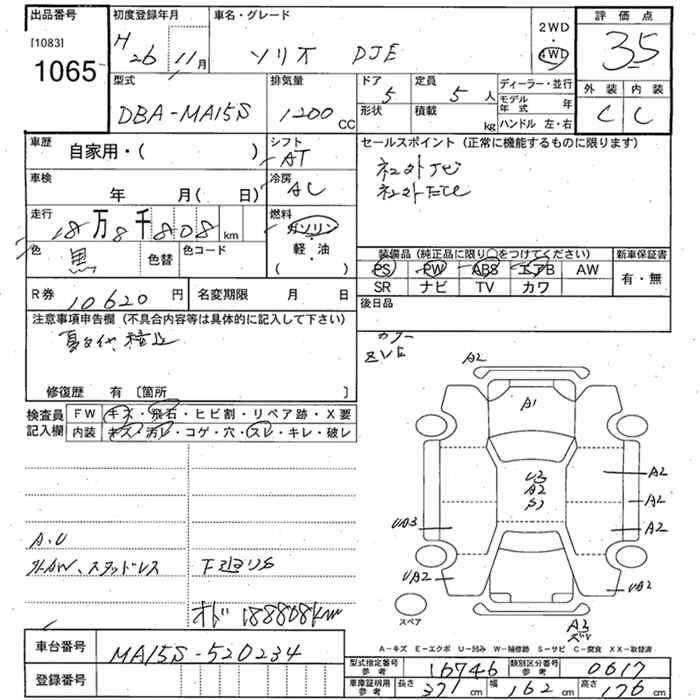 出品番号
[1083]
1065
初度登録年月
H 26 11月
車名・グレード
ソリオ DJE
2WD
・
4WD
評価点
3.5
外装 内装
C C
型式
DBA-MA15S
排気量
1200 CC
ドア
5
定員
5 人
形状
積載
kg
ディーラー・並行
モデル年式 年
ハンドル 左・右
車歴
自家用・( )
シフト
AT
車検
年 月( 日)
冷房
AC
走行
18万8千808km
燃料
ガソリン
・
軽・油
( )
色
黒
色替
色コード
セールスポイント(正常に機能するものに限ります)
社外ナビ
社外ETC
装備品(純正品に限り○をつけてください)
PS PW ABS エアB AW
SR ナビ TV カワ
新車保証書
有・無
R券
10620円
名変期限 月 日
後日品
注意事項申告欄(不具合内容等は具体的に記入して下さい)
修復歴 有〔箇所 〕
検査員記入欄
FW キズ・飛石・ヒビ割・リペア跡・X要
内装 キズ・汚レ・コゲ・穴・スレ・キレ・破レ
カラー
ZVE
A2
A1
U3
A2
S1
A2
A2
A2
UA3
UA2
UA2
スペア
A3
A.U
スタッドレス
オド188808km
車台番号
MA15S-520234
登録番号
A-キズ E-エクボ U-凹み W-補修跡 S-サビ C-腐食 XX-取替済
型式指定番号参考
16746
類別区分番号参考
0617
車庫証明用参考
長さ 371cm
幅 162cm
高さ 176cm